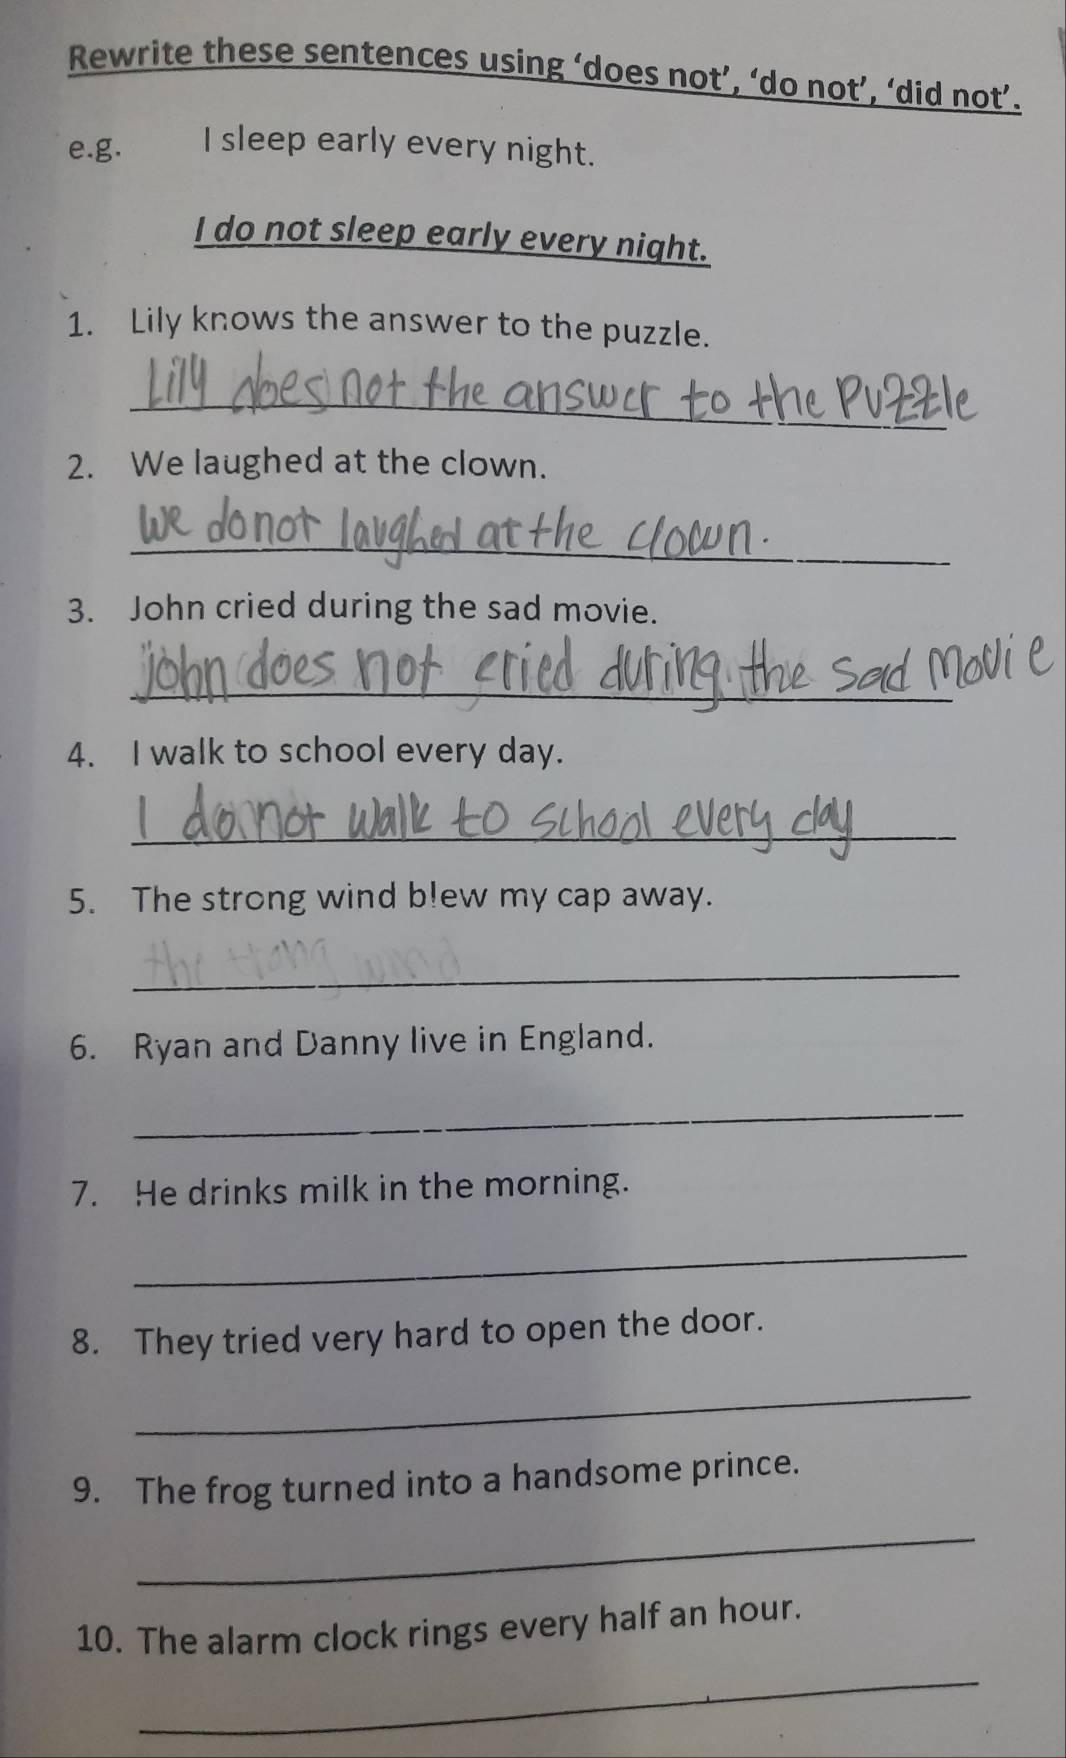 Rewrite these sentences using ‘does not’, ‘do not’, ‘did not’.
e.g. I sleep early every night.
I do not sleep early every night.
1. Lily knows the answer to the puzzle.
Lily does not the answer to the Puzzle
2. We laughed at the clown.
We do not laughed at the clown.
3. John cried during the sad movie.
john does not cried during the sad Movie
4. I walk to school every day.
I do not walk to school every day
5. The strong wind blew my cap away.
the trong wind
6. Ryan and Danny live in England.
7. He drinks milk in the morning.
8. They tried very hard to open the door.
9. The frog turned into a handsome prince.
10. The alarm clock rings every half an hour.